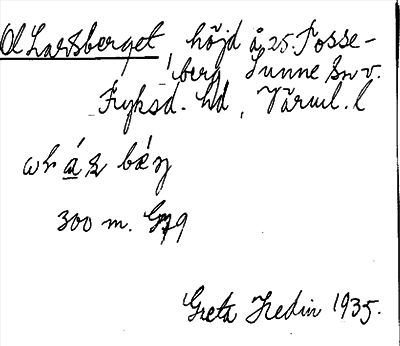 Ol Larsberget, höjd å 25. Fosse-
berg Sunne sn v.
Fryksd. hd, Värml. l
300 m. G79
Greta Hedin 1935.